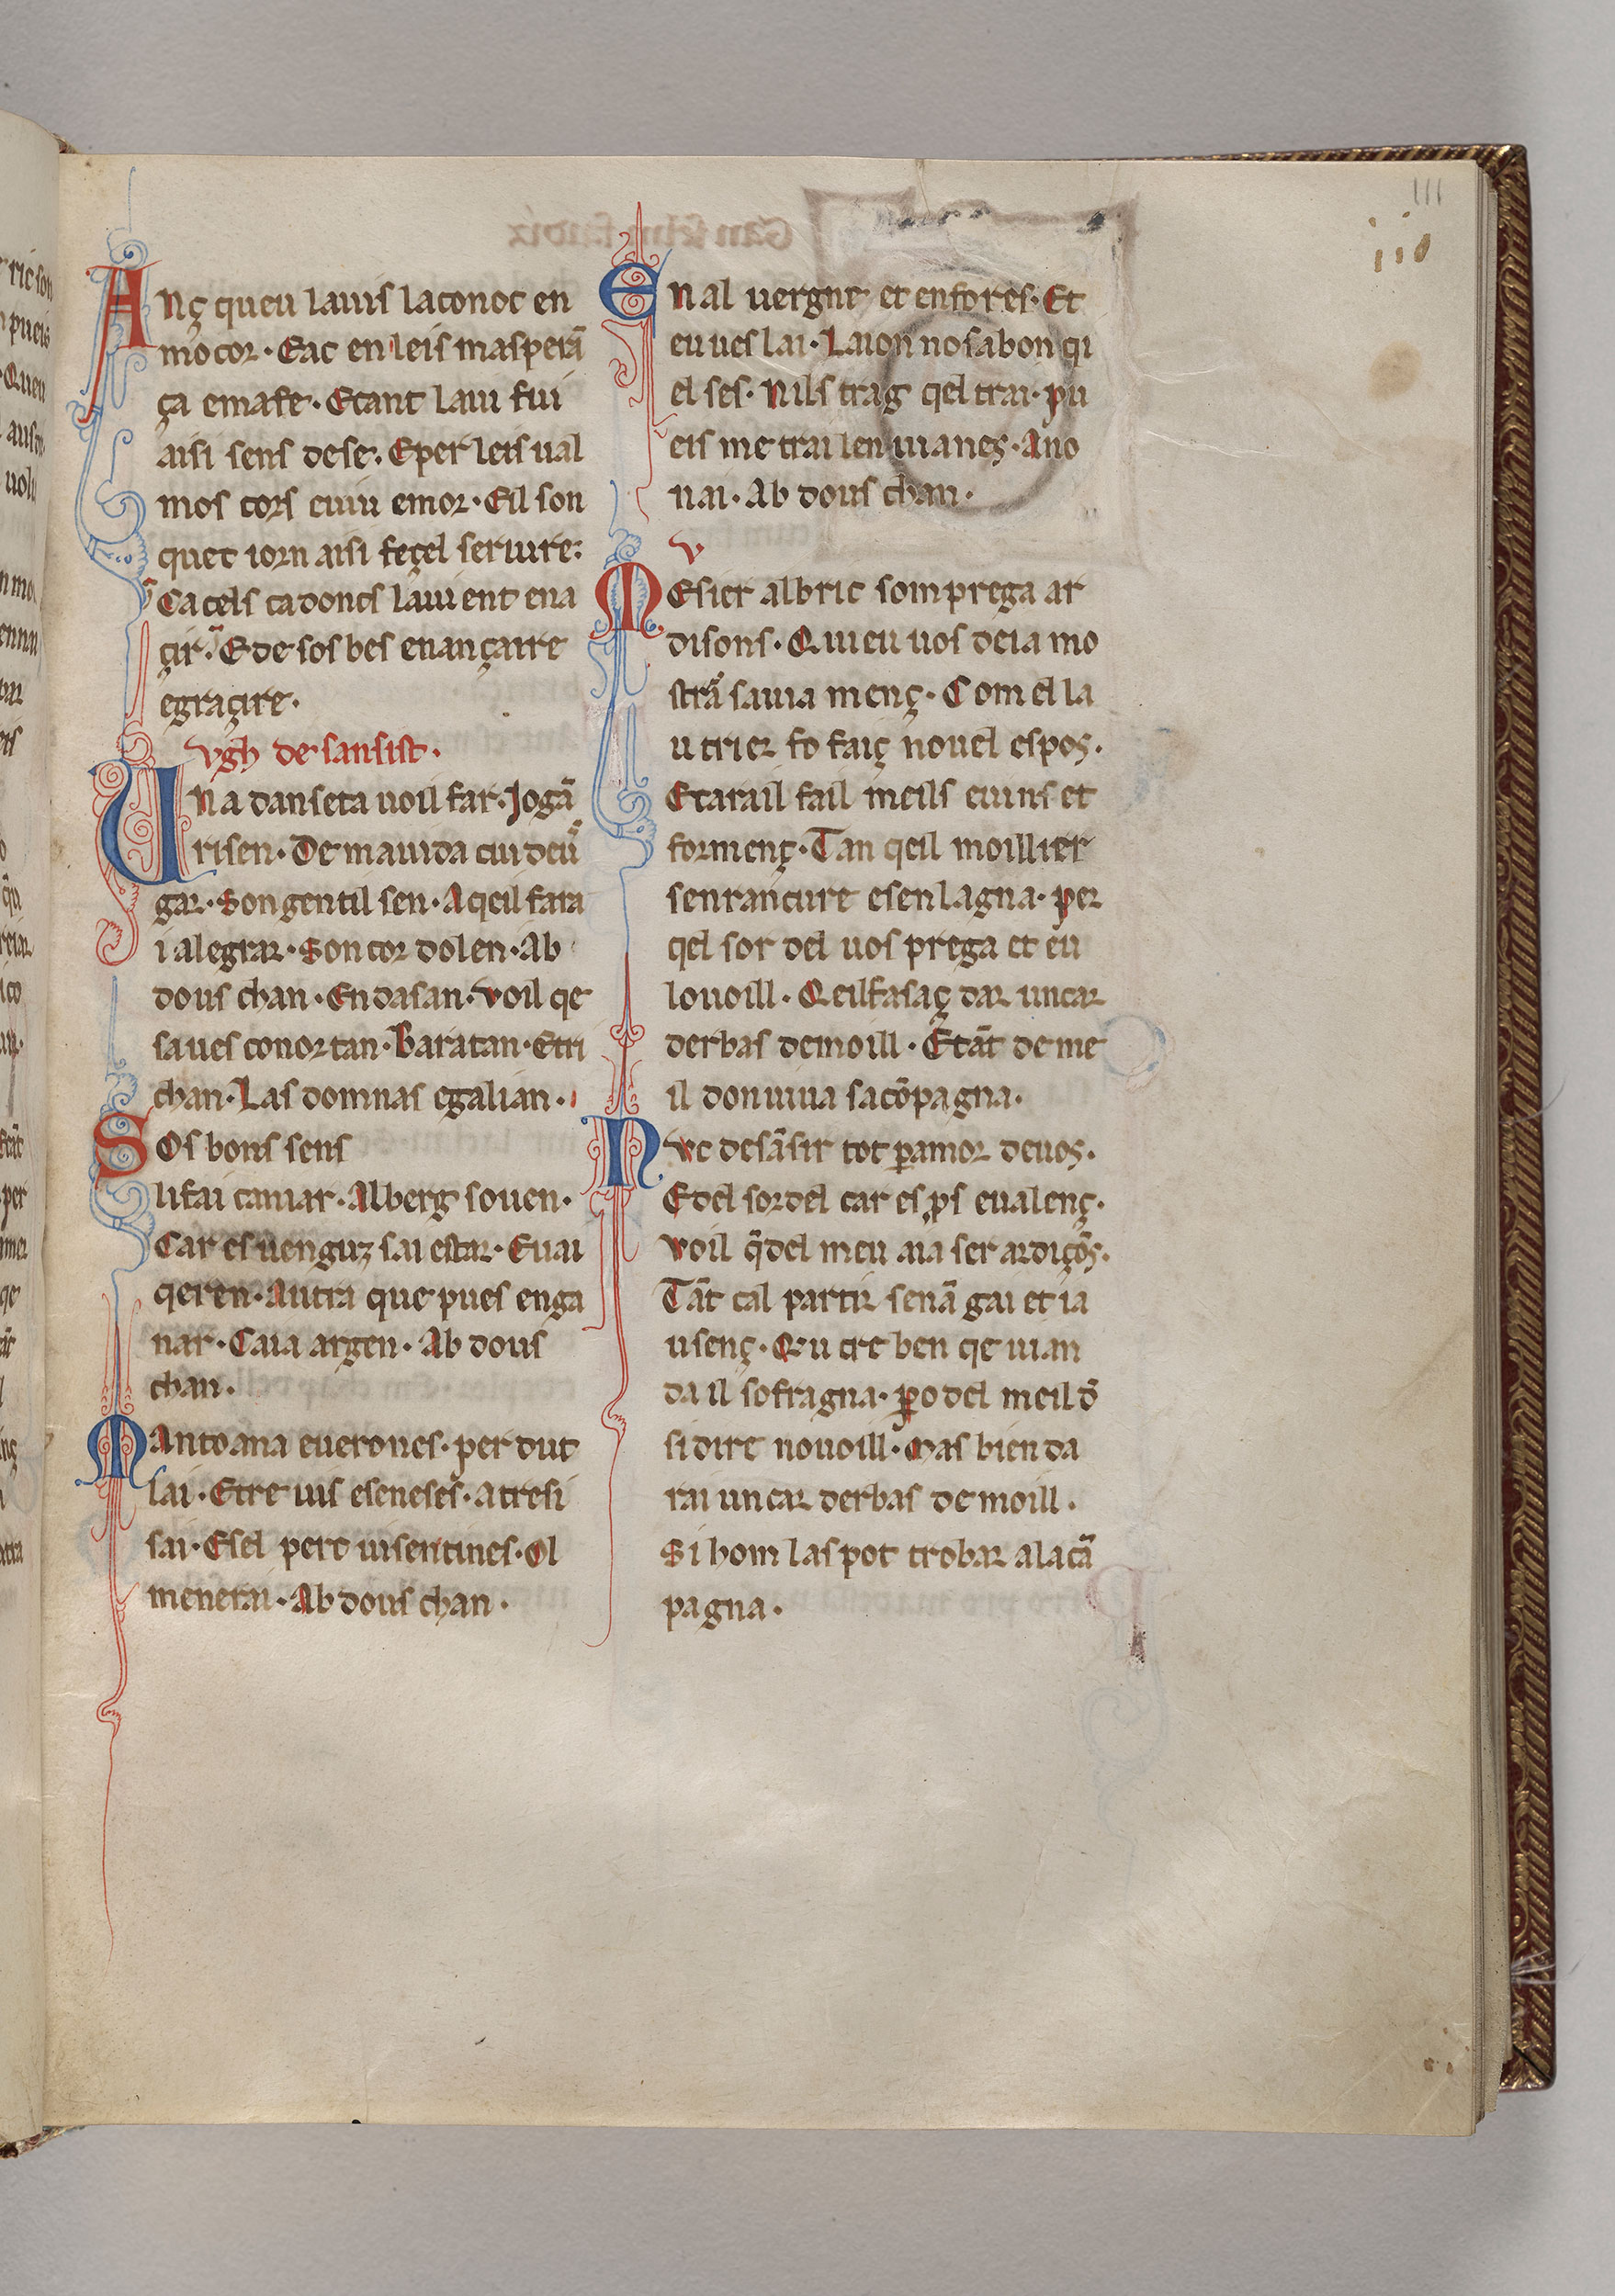 Anç queu lauis laconoc en
mo cor · Eac en leis masperã
ça emafe · Etant laui fui
aisi sens dese · Eper leis ual
mos cors cuiu emor · Eil son
quet iorn aisi feçel seruire :
Cacels cadoncs lauient ena
çir · E de sos bes enançaire
egraçire ·
vgh de sansist ·
Una danseta uoil far · Jogã
risen · De mauida cui deu
gar · Son gentil sen · Aqeil fara
i alegrar · Son cor dolen · Ab
dous chan · Endasan · Voil qe
saues conortan · Baratan · Etri
chan · Las domnas egalian ·
Sos bons sens
li fai camiar · Alberg souen ·
Car es uenguz sai estar · Euai
qeren · Autra que pues enga
nar · Caia argen · Ab dous
chan ·
Mantoana euerones · per dut
lai · Etre uis eseneses · atresi
sai · Esel pert uisentines · Ol
menerai · Ab dous chan ·
111
iii
En al uergne et enfores · Et
eu ues lai · Laion no sabon qi
el ses · Nils trag qel trai · pu
eis me trai len uianes · Ano
nai · Ab dous chan ·
v
Mesier albric somprega ar
disons · Quieu uos deia mo
strar sauia menç · Com el la
utrier fo faiç nouel espos ·
Etarail fail meils euins et
formenç · Tan qeil moillier
senrancure esenlagna · per
qel sor del uos prega et eu
louoill · Qeilfasaç dar un car
derbas demoill · Etãt de me
il don uiua sacõpagna ·
Nuc desãsir tot ꝑamor deuos ·
Edel sordel car es ps eualenç ·
Voil q̃del meu aia ser ardiços ·
Tãt cal partir senã gai et ia
usenç · Qu cre ben qe uian
da il sofragna · ꝑo del meil dõ
si dire nouoill · Mas bien da
rai un car derbas de moill ·
Si hom las pot trobar alacã
pagna ·